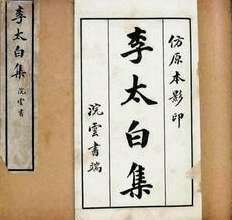 仿原本影印
李太白集
浣雲書端
李太白集
浣雲書